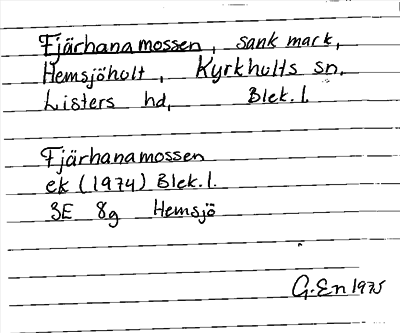 Fjärhanamossen, sank mark,
Hemsjöholt, Kyrkhults sn.
Listers hd, Blek. l.
Fjärhanamossen
ek (1974) Blek. l.
3E 8g Hemsjö
G. En 1975